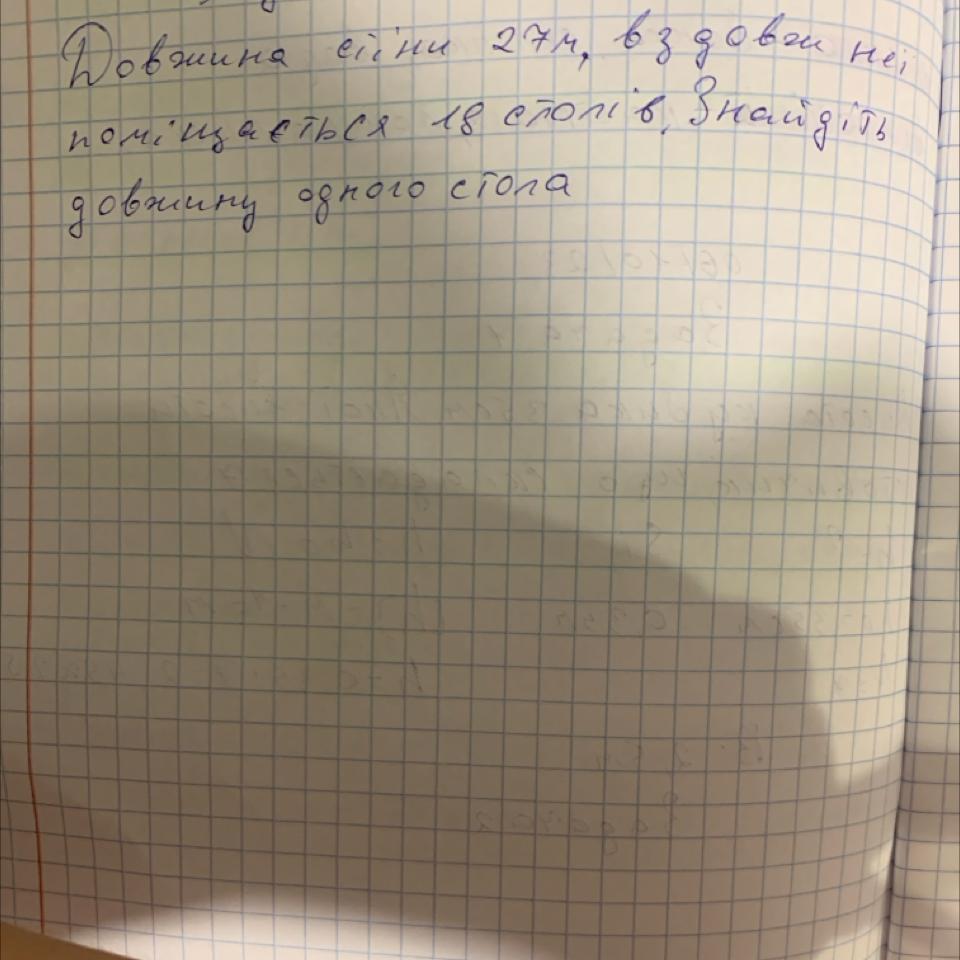 Довжина стіни 27м, вздовж неї
поміщається 18 столів. Знайдіть
довжину одного стола